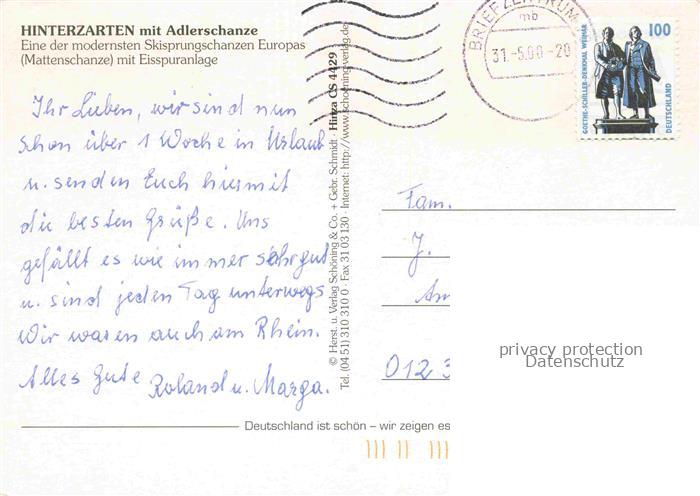 HINTERZARTEN mit Adlerschanze
Eine der modernsten Skisprungschanzen Europas
(Mattenschanze) mit Eisspuranlage
Ihr Lieben, wir sind nun
schon über 1 Woche in Urlaub
u. senden Euch hiermit
die besten Grüße. Uns
gefällt es wie immer sehr gut
u. sind jeden Tag unterwegs
Wir waren auch am Rhein.
Alles Gute Roland u. Marga.
© Herst. u. Verlag Schöning & Co. + Gebr. Schmidt · Hinza CS 4429
Tel. (04 51) 310 310 0 · Fax 31 03 130 · Internet: http://www.schoening-verlag.de
BRIEFZENTRUM
mb
31.-5.00-20
100
GOETHE-SCHILLER-DENKMAL WEIMAR
DEUTSCHLAND
Fam.
J.
Am
012 3
privacy protection
Datenschutz
Deutschland ist schön – wir zeigen es